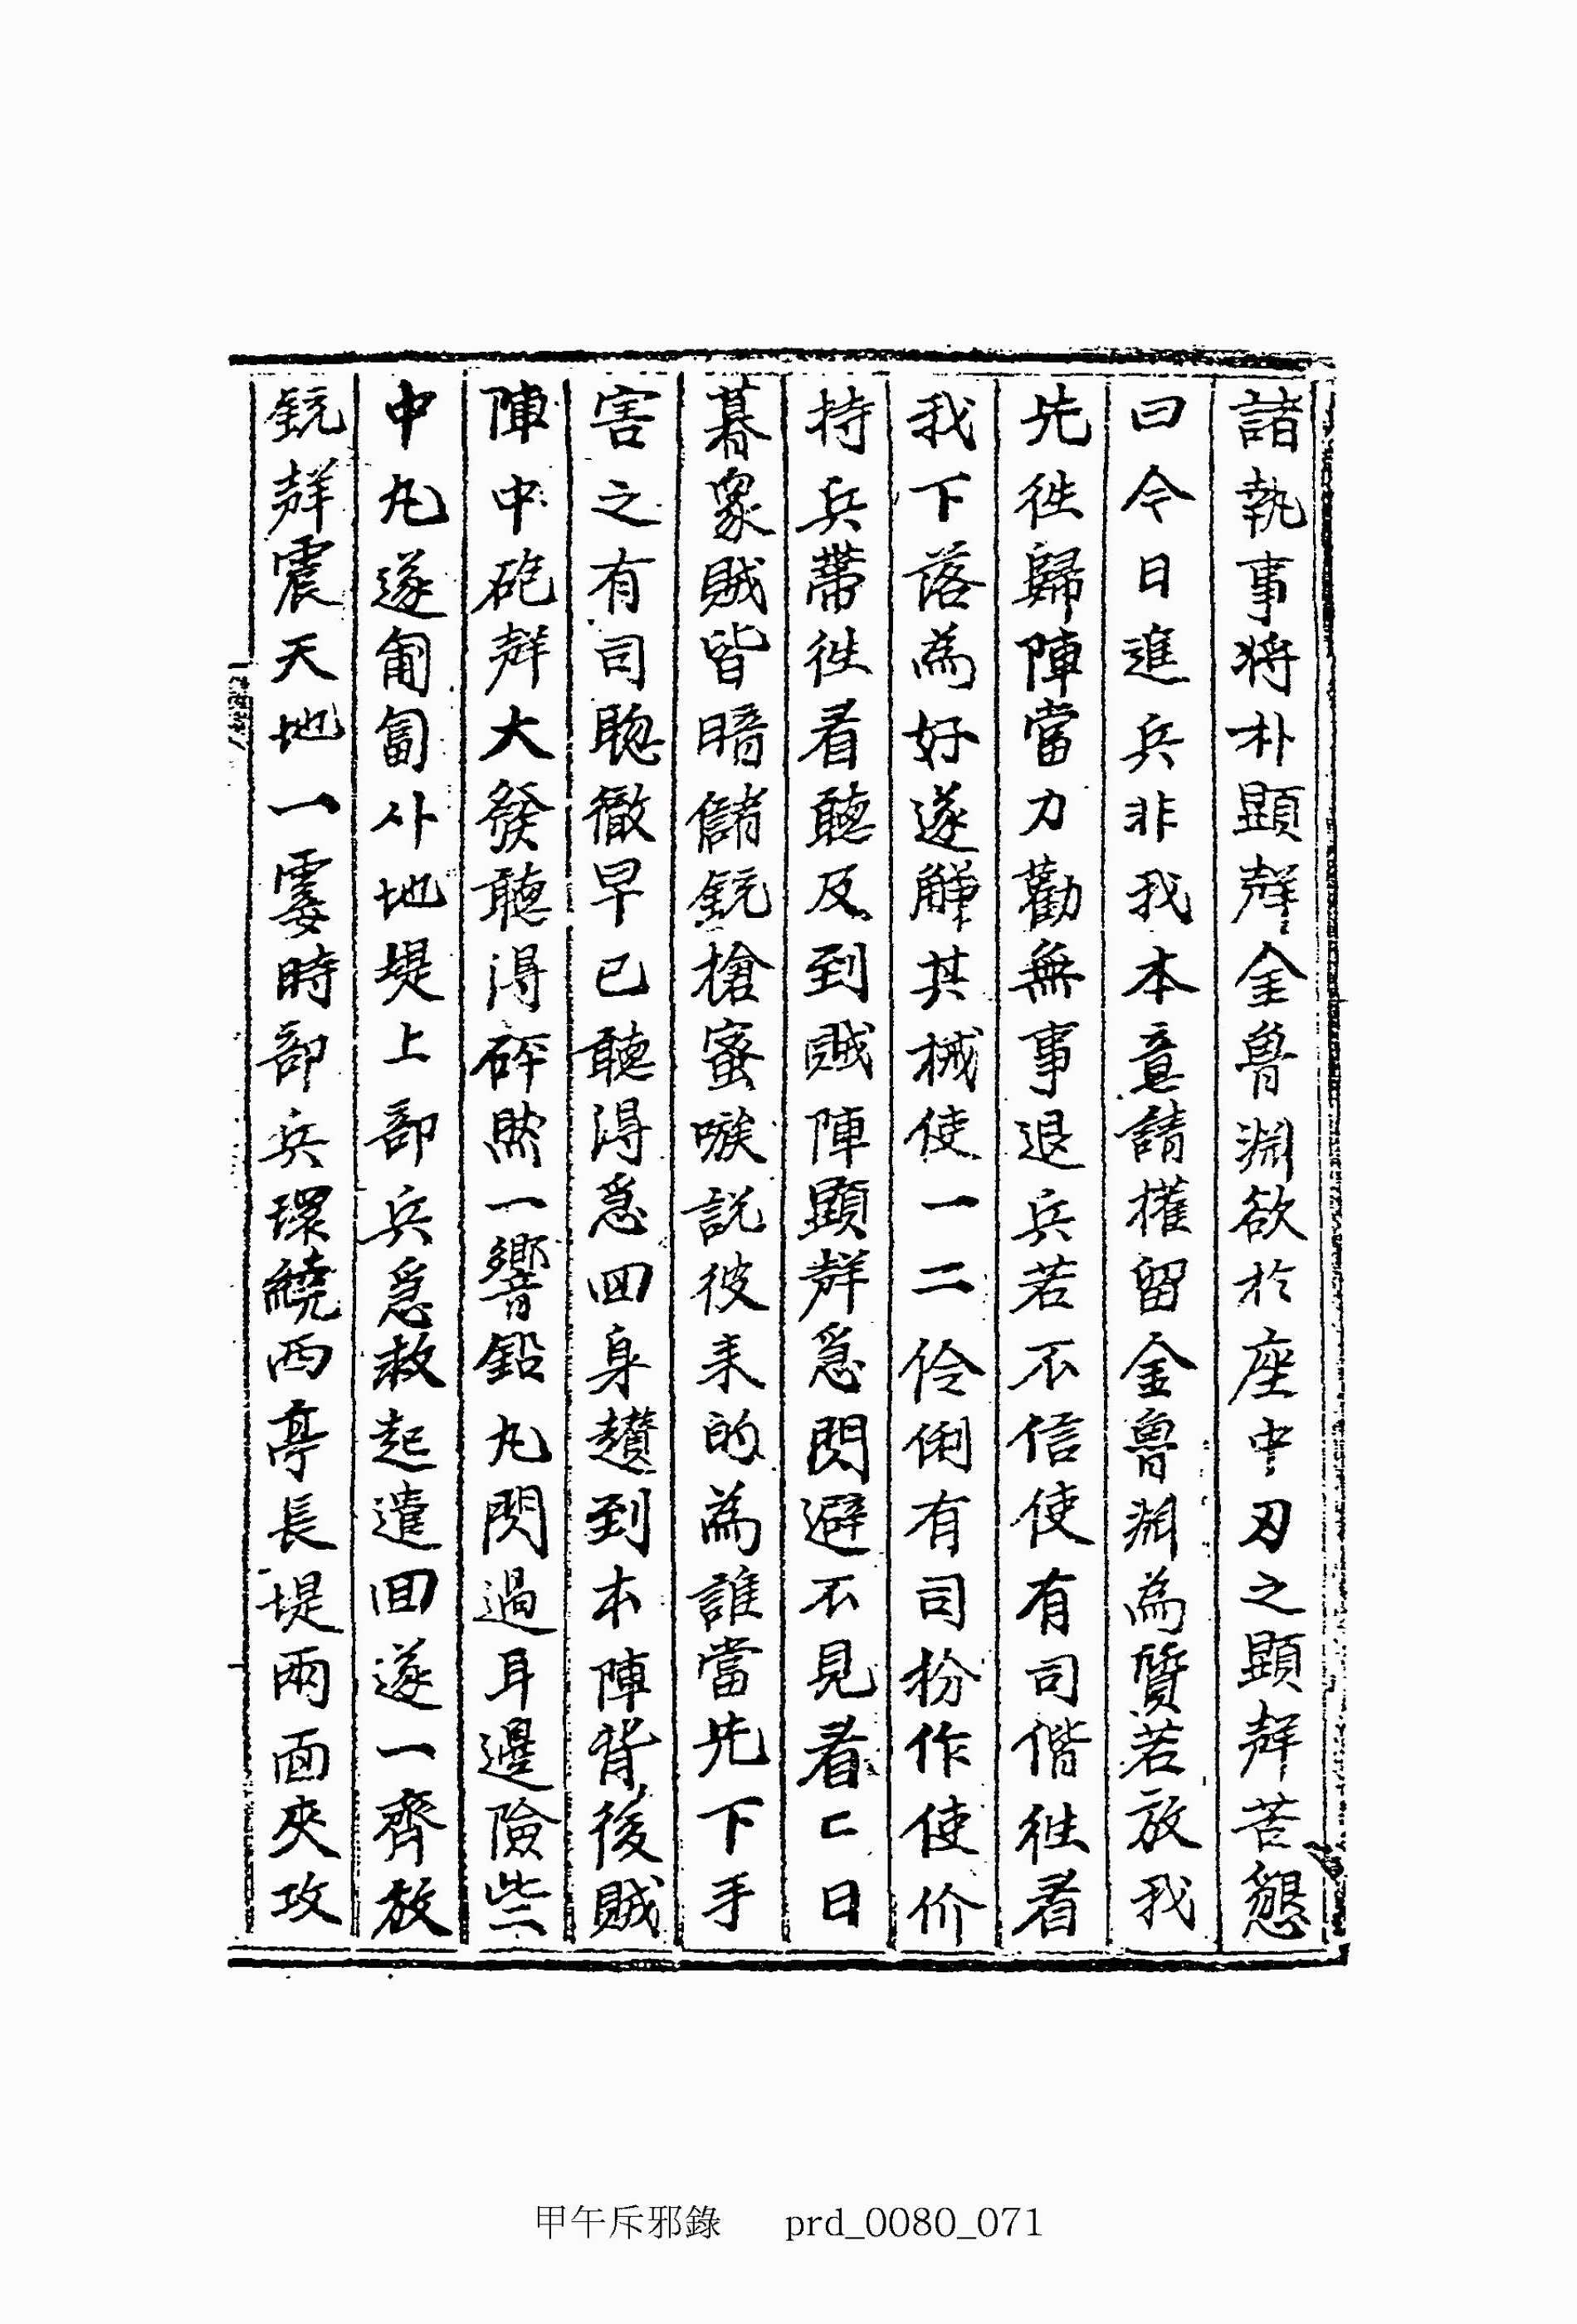 諸執事將朴顯聲金魯淵欲於座中刃之顯聲苦懇
曰今日進兵非我本意請權留金魯淵為質若放我
先徃歸陣當力勸無事退兵若不信使有司偕徃看
我下落為好遂觧其械使一二伶俐有司扮作使价
持兵帶徃看聽及到賊陣顯聲急閃避不見看已日
暮衆賊皆暗儲銃槍蜜嗾説彼来的為誰當先下手
害之有司聰徹早已聽得急回身趲到本陣背後賊
陣中砲聲大發聽得砰然一響鉛丸閃過耳邊險些
中丸遂匍匐仆地堤上部兵急救起遣回遂一齊放
銃聲震天地一霎時部兵環繞西亭長堤兩面夾攻
甲午斥邪錄 prd_0080_071